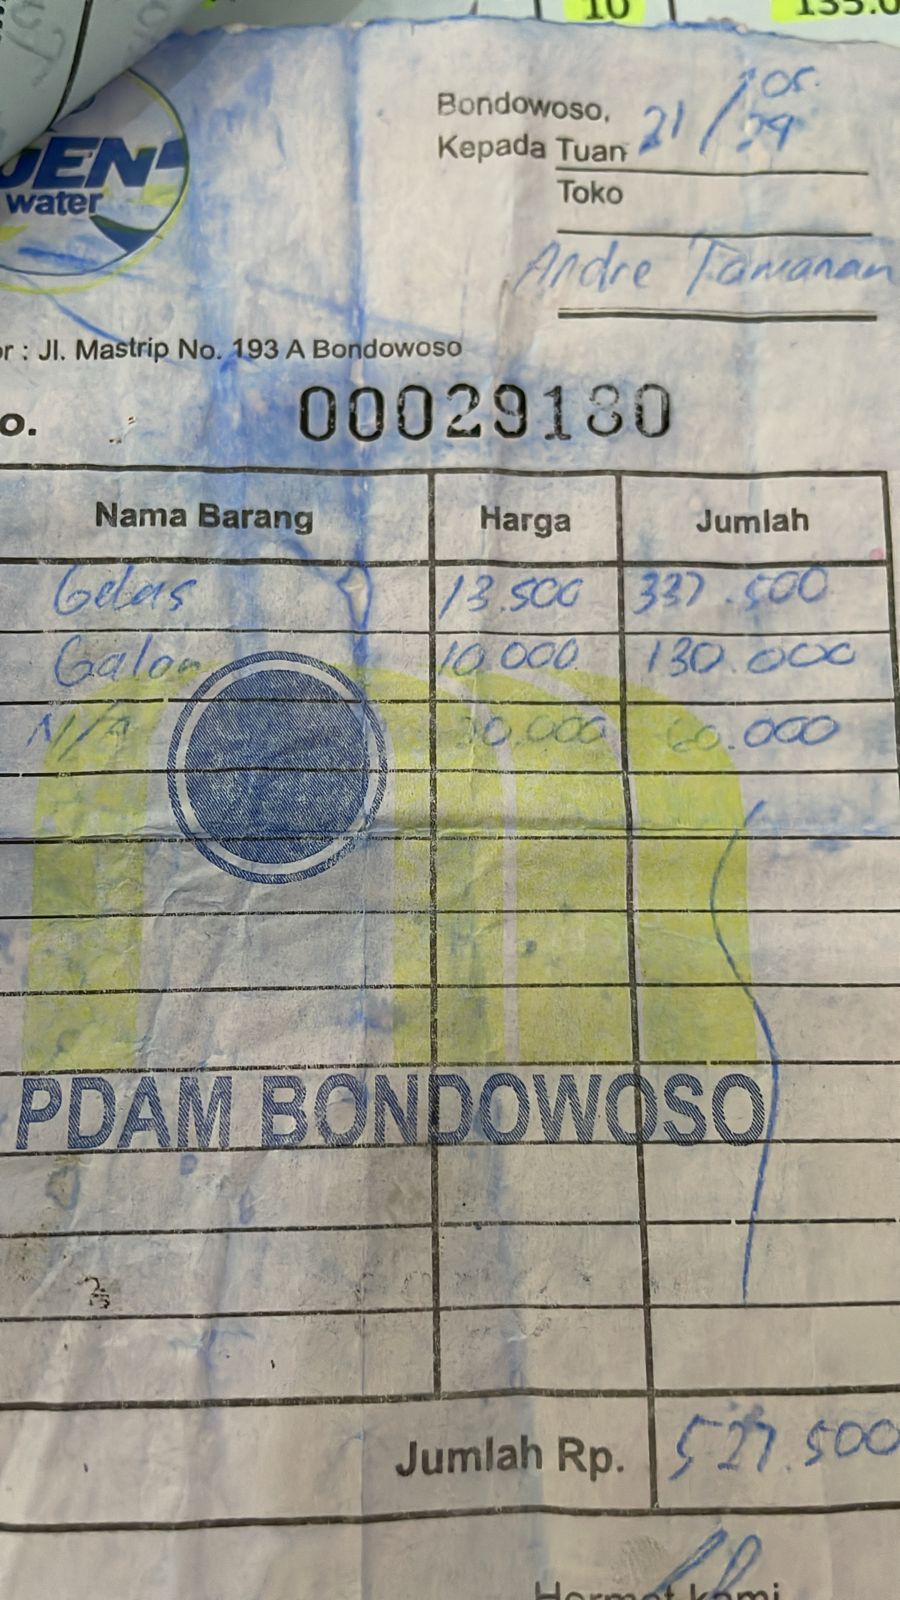 10 135.0
Bondowoso, 21/05.
Kepada Tuan
Toko
JEN
water
Andre Tamanan
or : Jl. Mastrip No. 193 A Bondowoso
o. 00029180
Nama Barang Harga Jumlah
Gelas 13.500 337.500
Galon 10.000 130.000
N/A 60.000
PDAM BONDOWOSO
Jumlah Rp. 527.500
Hormat kami